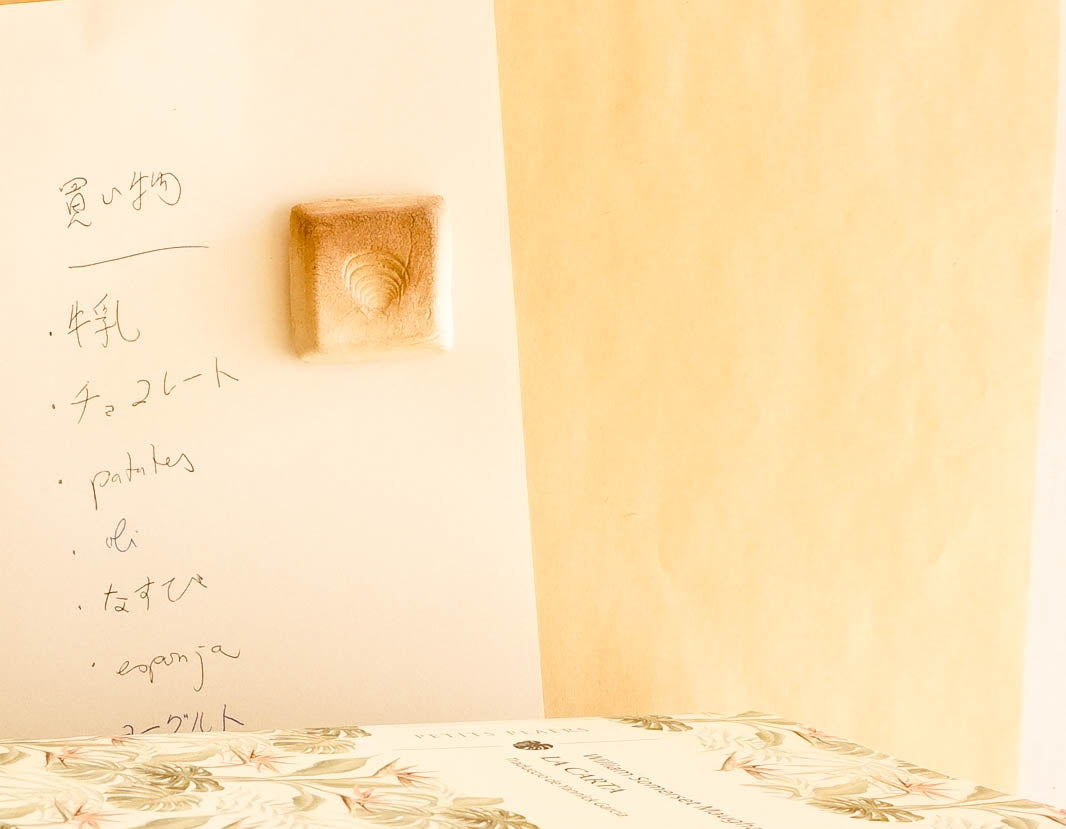 買い物
・牛乳
・チョコレート
・patates
・oli
・なすび
・esponja
ヨーグルト
PETITS PLAERS
William Somerset Maugham
LA CARTA
Traducció de Yannick Garcia